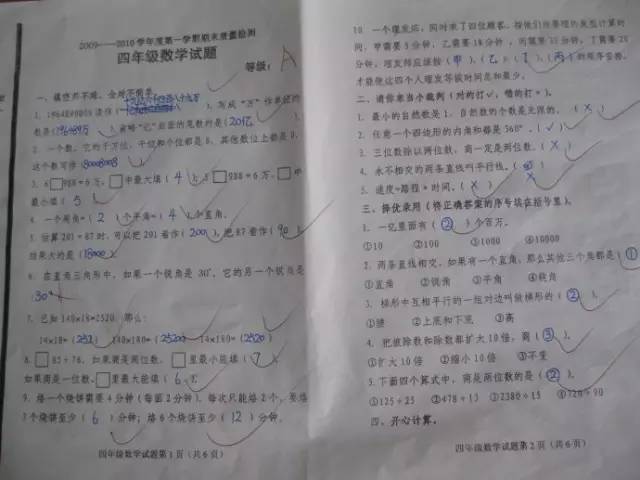 2009——2010学年度第一学期期末质量检测
四年级数学试题
等级： A
一、填空
1、1964890800读作( ),写成“万”作单位的
数是(196489万),省略“亿”后面的尾数约是(20亿)。
2、一个数，它的千万位、千位和个位都是8，其他数位上都是0，
这个数写作(80008008)
3、6□988≈6万，□中最大填(4) 5□988≈6万，□中
最小填(5)
4、一个周角=(2)个平角=(4)个直角。
5、估算201×87时，可以把201看作(200),把87看作(90)
结果大约是(18000)
6、在直角三角形中，如果一个锐角是30°，它的另一个锐角是
30°
7、已知140×18=2520，那么：
14×18=(252) 140×180=(25200) 14×180=(2520)
8、□85÷76，如果商是两位数，□里最小能填(7),
如果商是一位数，□里最大能填(6)。
9、烙一个烧饼需要4分钟(每面2分钟)，每次只能烙2个，要烙
3个烧饼至少(6)分钟；烙6个烧饼至少(12)分钟。
四年级数学试题第1页（共6页）
10、一个理发店，同时来了四位顾客，按他们所要理的发型计算时
间，甲需要5分钟，乙需要18分钟，丙需要35分钟，丁需要20
分钟，理发师应该按(甲)(乙)(丁)(丙)的顺序安排，
才能使这四个人理发等候时间总和最少。
二、请你来当小裁判（对的打√，错的打×）。
1、最小的自然数是1，自然数的个数是无限的。(×)
2、任意一个四边形的内角和都是360°。(√)
3、三位数除以两位数，商一定是两位数。(×)
4、永不相交的两条直线叫平行线。
5、速度=路程×时间。(×)
三、择优录用（将正确答案的序号填在括号里）。
1、一亿里面有(②)个百万。
①10 ②100 ③1000 ④10000
2、两条直线相交，如果有一个直角，那么其他三个角都是(①
①直角 ②锐角 ③平角 ④钝角
3、梯形中互相平行的一组对边叫做梯形的(②)。
①腰 ②上底和下底 ③高
4、把被除数和除数都扩大10倍，商(③)。
①扩大10倍 ②缩小10倍 ③不变
5、下面四个算式中，商是两位数的是(②)
①125÷25 ②478÷13 ③2380÷15 ④720÷90
四、开心计算。
四年级数学试题第2页（共6页）